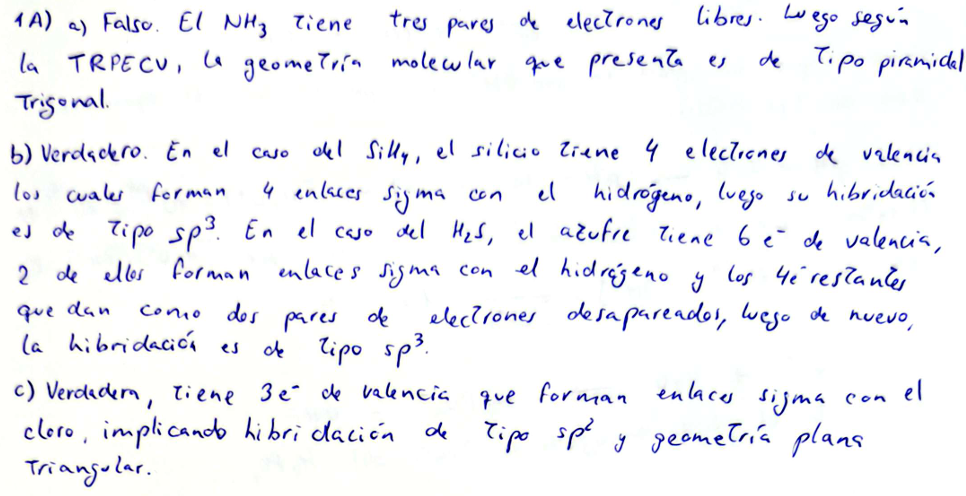 1A) a) Falso. El NH3 tiene tres pares de electrones libres. Luego según
la TRPECV, la geometría molecular que presenta es de tipo piramidal
Trigonal.
b) Verdadero. En el caso del SiH4, el silicio tiene 4 electrones de valencia
los cuales forman 4 enlaces sigma con el hidrógeno, luego su hibridación
es de tipo sp³. En el caso del H2S, el azufre tiene 6 e⁻ de valencia,
2 de ellos forman enlaces sigma con el hidrógeno y los 4e⁻ restantes
quedan como dos pares de electrones desapareados, luego de nuevo,
la hibridación es de tipo sp³.
c) Verdadera, tiene 3e⁻ de valencia que forman enlaces sigma con el
cloro, implicando hibridación de tipo sp² y geometría plana
Triangular.